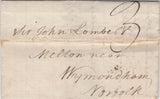 Sir John Lombe Bt
Melton near
Wymondham
Norfolk